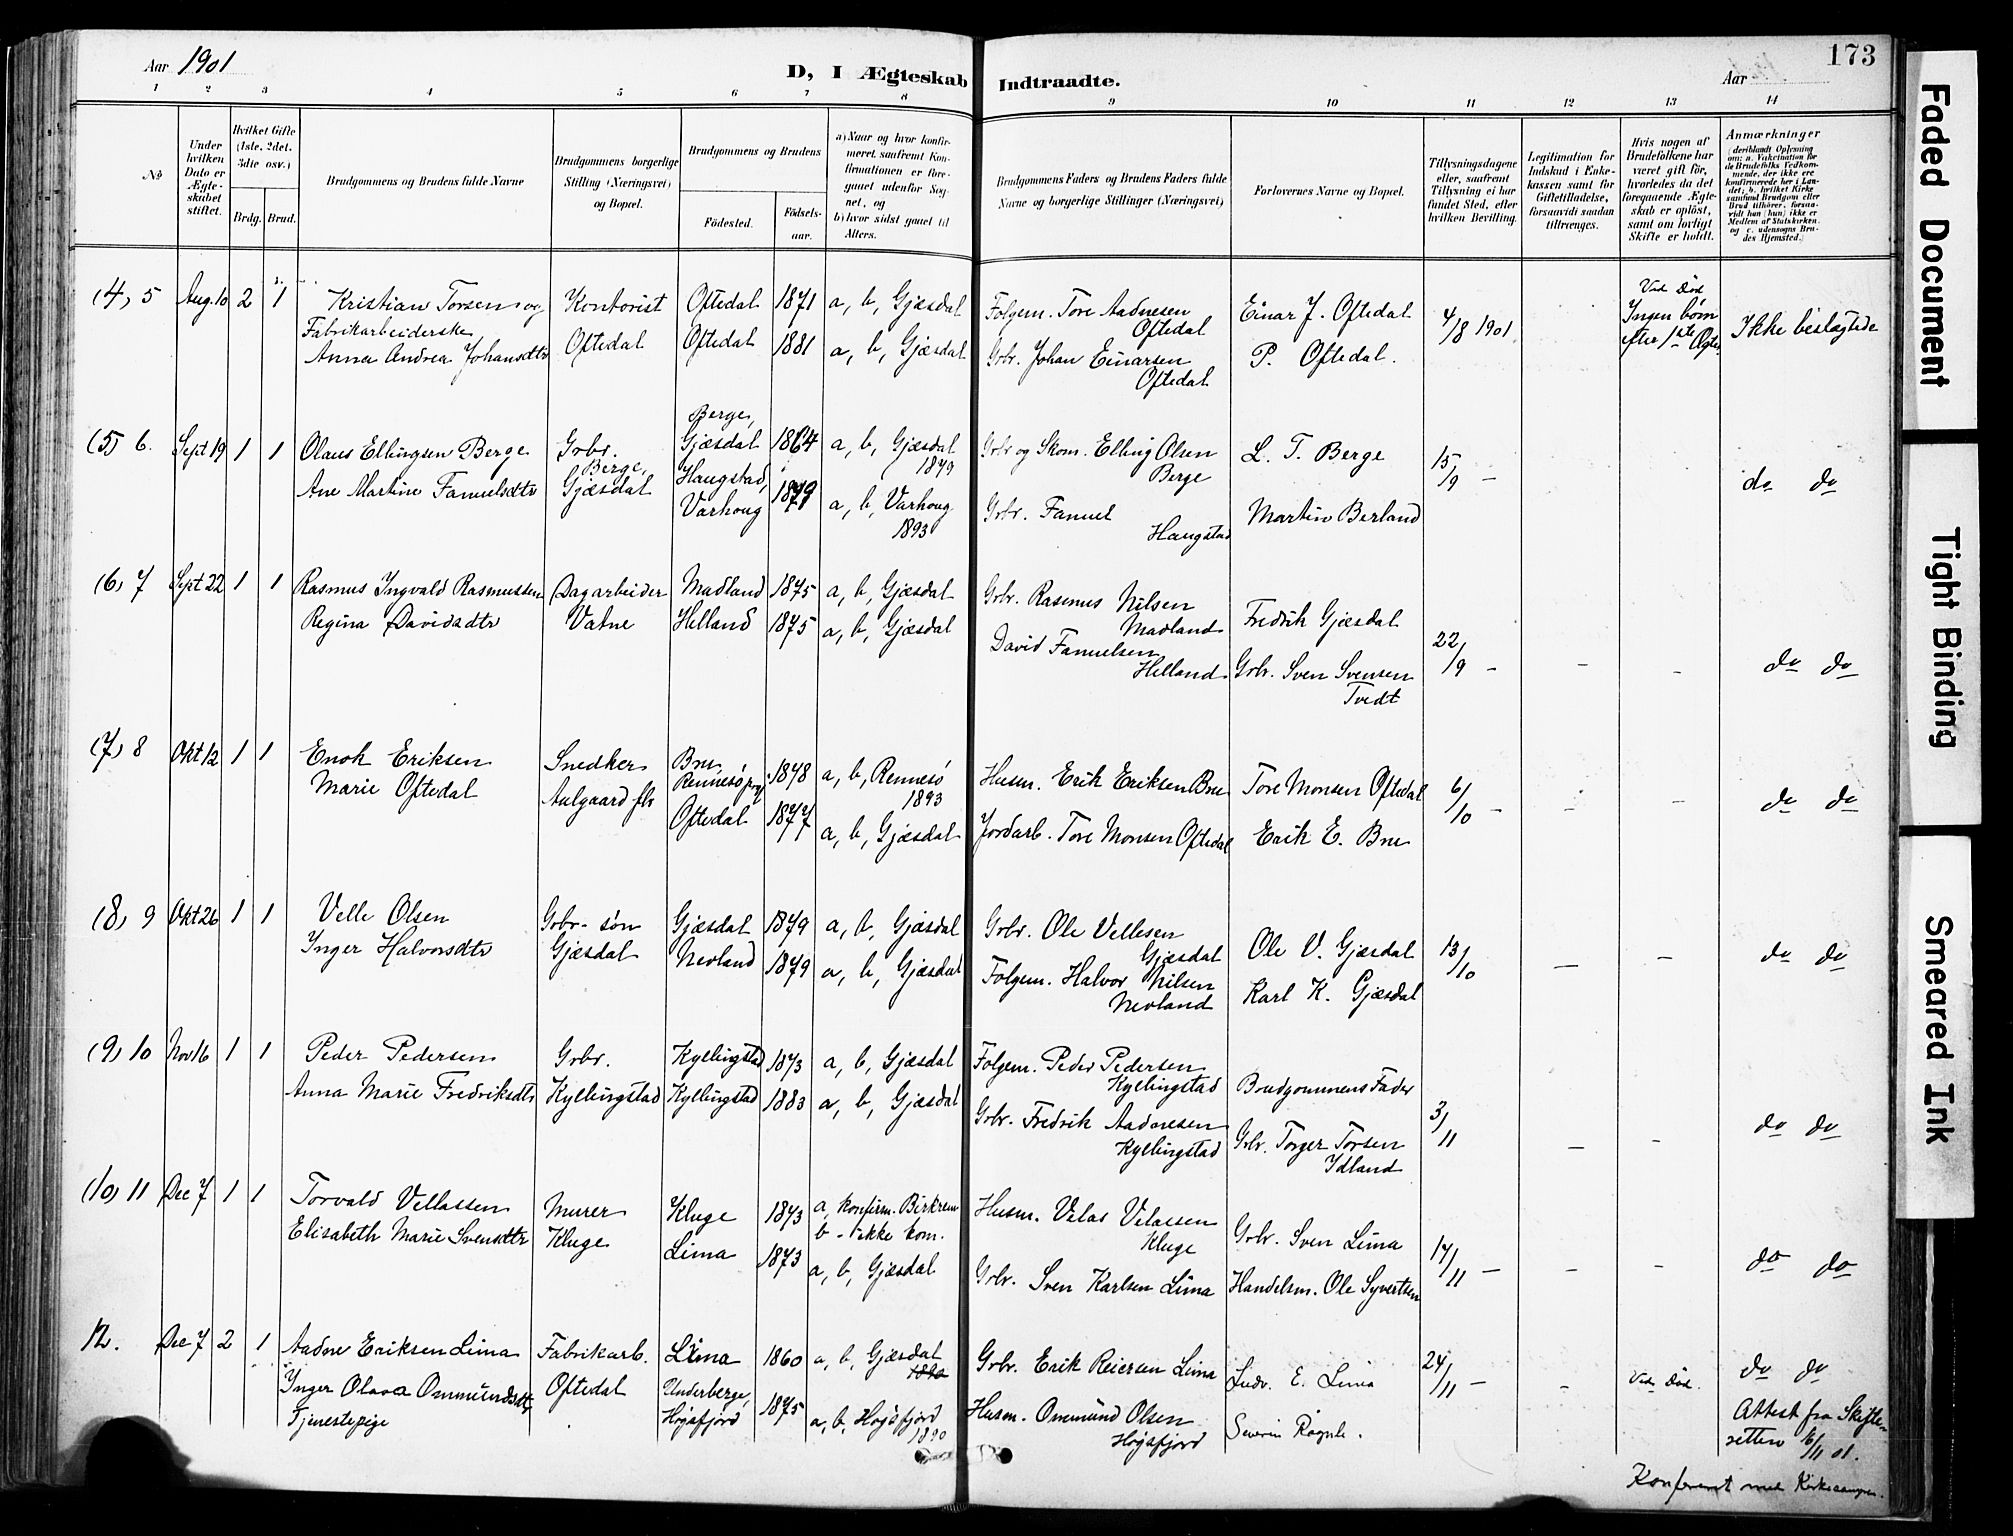 Aar 1901
D, I Ægteskab Indtraadte.
Aar
173
1 2 3 4 5 6 7 8 9 10 11 12 13 14
No
Under hvilken Dato er Ægteskabet stiftet.
Hvilket Gifte (1ste, 2det, 3die osv.)
Brdg. Brud.
Brudgommens og Brudens fulde Navne
Brudgommens borgerlige Stilling (Næringsvei) og Bopæl.
Brudgommens og Brudens
Fødested. Fødselsaar.
a) Naar og hvor konfirmeret, saafremt Konfirmationen er foregaaet udenfor Sognet, og
b) hvor sidst gaaet til Alters.
Brudgommens Faders og Brudens Faders fulde Navne og borgerlige Stillinger (Næringsvei)
Forlovernes Navne og Bopæl.
Tillysningsdagene eller, saafremt Tillysning ei har fundet Sted, efter hvilken Bevilling.
Legitimation for Indskud i Enkekassen samt for Giftetilladelse, forsaavidt saadan tiltrænges.
Hvis nogen af Brudefolkene har været gift før, hvorledes da det foregaaende Ægteskab er opløst, samt om lovligt Skifte er holdt.
Anmærkninger
(deriblandt Oplysning om: a. Vakcination for de Brudefolks Vedkommende, der ikke ere konfirmerede her i Landet; b. hvilket Kirkesamfund Brudgom eller Brud tilhører, forsaavidt han (hun) ikke er Medlem af Statskirken, og c. udensogns Brudes Hjemsted.)
(4) 5 Aug. 10 2 1 Kristian Torsen og Kontorist Oftedal 1871 a, b, Gjæsdal Folgem. Tore Aadnesen Oftedal Einar J. Oftedal 4/8 1901. Ved Død Ingen børn efter 1ste Ægtes. Ikke beslægtede
Fabrikarbeiderske
Anna Andrea Johansdtr Oftedal Oftedal 1881 a, b, Gjæsdal Grbr. Johan Einarsen Oftedal P. Oftedal.
(5) 6. Sept 19 1 1 Olaus Ellingsen Berge Grbr. Berge, Gjæsdal 1864 a, b, Gjæsdal 1879 Grbr og Skom. Elling Olsen Berge L. T. Berge 15/9 - do do
Ane Martine Fanuelsdtr Berge, Gjæsdal Haugstad, Varhoug 1879 a, b, Varhoug 1893 Grbr. Fanuel Haugstad Martin Berland
(6) 7 Sept 22 1 1 Rasmus Ingvald Rasmussen Dagarbeider Madland 1875 a, b, Gjæsdal Grbr. Rasmus Nilsen Madland Fredrik Gjæsdal 22/9 - - - do do
Regina Davidsdtr Vatne Helland 1875 a, b, Gjæsdal David Fanuelsen Helland Grbr. Sven Svensen Tvedt
(7) 8 Okt 12 1 1 Enok Eriksen Snedker Bru, Rennesø prg 1878 a, b, Rennesø 1893 Husm. Erik Eriksen Bru Tore Monsen Oftedal 6/10 - - - do do
Marie Oftedal Aalgaard fbr Oftedal 1877 a, b, Gjæsdal Jordarb. Tore Monsen Oftedal Erik E. Bru
(8) 9 Okt 26 1 1 Velle Olsen Grbr-søn Gjæsdal 1879 a, b, Gjæsdal Grbr. Ole Vellesen Gjæsdal Ole V. Gjæsdal 13/10 - - do do
Inger Halvorsdtr Gjæsdal Nevland 1879 a, b, Gjæsdal Folgem. Halvor Nilsen Nevland Karl K. Gjæsdal
(9) 10 Nov 16 1 1 Peder Pedersen Grbr. Kyllingstad 1873 a, b, Gjæsdal Folgem. Peder Pedersen Kyllingstad Brudgommens Fader 3/11 - - do do
Anna Marie Fredriksdtr Kyllingstad Kyllingstad 1883 a, b, Gjæsdal Grbr. Fredrik Aadnesen Kyllingstad Grbr. Torger Torsen Ydland
(10) 11 Dec 7 1 1 Torvald Vellassen Murer Kluge 1873 a, konfirm. Birkrem b - ikke kom. Husm. Velas Velassen Kluge Grbr. Sven Lima 17/11 - - - do do
Elisabeth Marie Svensdtr Kluge Lima 1873 a, b, Gjæsdal Grbr. Sven Karlsen Lima Handelsm. Ole Syvertsen
12. Dec 7 2 1 Aadne Eriksen Lima Fabrikarb. Lima 1860 a, b, Gjæsdal Grbr. Erik Reiersen Lima Ludv. E. Lima 24/11 - - Ved Død. do do
Inger Olava Ommundsdtr Oftedal Underberge, Høgsfjord 1875 a, b, Høgsfjord 1890 Husm. Ommund Olsen Høgsfjord Severin Ragnle. Attest fra Skifteretten 6/11 01.
Tjenestepige
Konfereret med Kirkesangeren.
Faded Document
Tight Binding
Smeared Ink